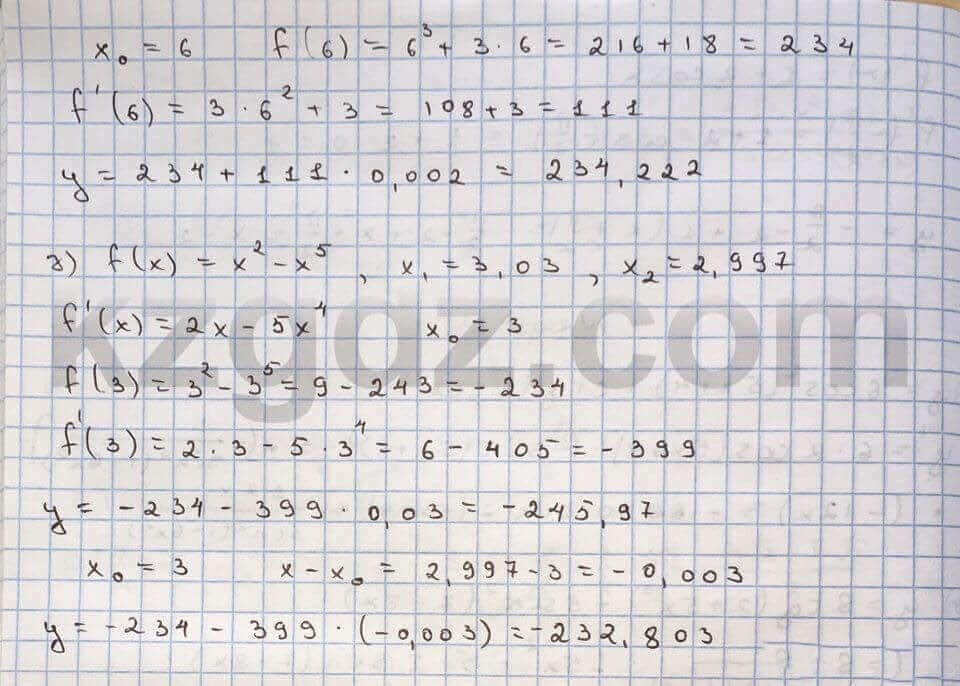 x₀ = 6 f(6) = 6³ + 3 · 6 = 216 + 18 = 234
f'(6) = 3 · 6² + 3 = 108 + 3 = 111
y = 234 + 111 · 0,002 = 234,222
з) f(x) = x² - x⁵, x₁ = 3,03, x₂ = 2,997
f'(x) = 2x - 5x⁴ x₀ = 3
kzgdz.com
f(3) = 3² - 3⁵ = 9 - 243 = - 234
f'(3) = 2 · 3 - 5 · 3⁴ = 6 - 405 = - 399
y = - 234 - 399 · 0,03 = - 245,97
x₀ = 3 x - x₀ = 2,997 - 3 = - 0,003
y = - 234 - 399 · (-0,003) = - 232,803